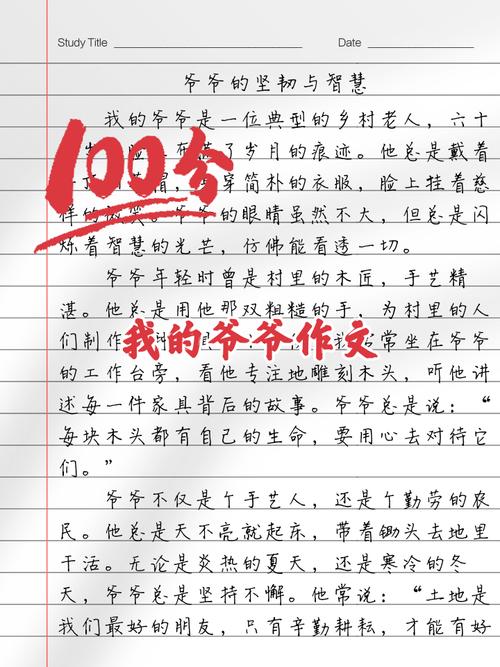 Study Title
Date
爷爷的坚韧与智慧
我的爷爷是一位典型的乡村老人，六十
脸 了岁月的痕迹。他总是戴着
100分
帽， 穿简朴的衣服，脸上挂着慈
样的微笑。爷爷的眼睛虽然不大，但总是闪
烁着智慧的光芒，仿佛能看透一切。
爷爷年轻时曾是村里的木匠，手艺精
湛。他总是用他那双粗糙的手，为村里的人
们制作 常坐在爷爷
我的爷爷作文
的工作台旁，看他专注地雕刻木头，听他讲
述每一件家具背后的故事。爷爷总是说：“
每块木头都有自己的生命，要用心去对待它
们。”
爷爷不仅是个手艺人，还是个勤劳的农
民。他总是天不亮就起床，带着锄头去地里
干活。无论是炎热的夏天，还是寒冷的冬
天，爷爷总是坚持不懈。他常说：“土地是
我们最好的朋友，只有辛勤耕耘，才能有好